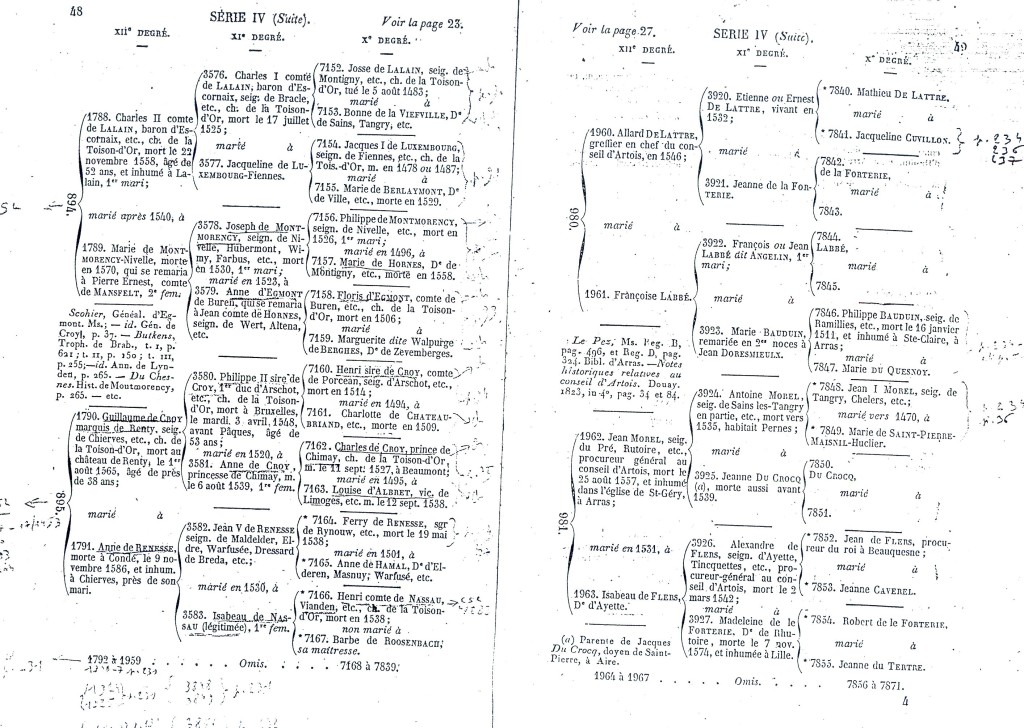 48
SÉRIE IV (Suite).
Voir la page 23.
XIIe DEGRÉ.
XIe DEGRÉ.
Xe DEGRÉ.
1788. Charles II comte
de LALAIN, baron d'Es-
cornaix, etc., ch. de la
Toison-d'Or, mort le 22
novembre 1558, âgé de
52 ans, et inhumé à La-
lain, 1er mari;
marié après 1540, à
1789. Marie de MONT-
MORENCY-Nivelle, morte
en 1570, qui se remaria
à Pierre Ernest, comte
de MANSFELT, 2e fem.
894.
Scohier, Généal. d'Eg-
mont. Ms.; — id. Gén. de
Croy, p. 37. — Butkens,
Troph. de Brab., t. I, p.
621; t. II, p. 150; t. III,
p. 255; — id. Ann. de Lyn-
den, p. 265. — Du Ches-
nes. Hist. de Montmorency,
p. 265. — etc.
1790. Guillaume de CROY
marquis de Renty, seig.
de Chierves, etc., ch. de
la Toison-d'Or, mort au
château de Renty, le 1er
août 1565, âgé de près
de 38 ans;
marié à
1791. Anne de RENESSE,
morte à Condé, le 9 no-
vembre 1586, et inhum.
à Chierves, près de son
mari.
895.
3576. Charles I comte
de LALAIN, baron d'Es-
cornaix, seig. de Bracle,
etc., ch. de la Toison-
d'Or, mort le 17 juillet
1525;
marié à
3577. Jacqueline de LU-
XEMBOURG-Fiennes.
3578. Joseph de MONT-
MORENCY, seign. de Ni-
velle, Hubermont, Wi-
my, Farbus, etc., mort
en 1530, 1er mari;
marié en 1523, à
3579. Anne d'EGMONT
de Buren, qui se remaria
à Jean comte de HORNES,
seign. de Wert, Altena,
etc.
3580. Philippe II sire de
CROY, 1er duc d'Arschot,
etc., ch. de la Toison-
d'Or, mort à Bruxelles,
le mardi, 3 avril, 1548,
avant Pâques, âgé de
53 ans;
marié en 1520, à
3581. Anne de CROY,
princesse de Chimay, m.
le 6 août 1539, 1re fem.
3582. Jean V de RENESSE
seign. de Maldelder, El-
dre, Warfusée, Dressard
de Breda, etc.;
marié en 1530, à
3583. Isabeau de NAS-
SAU (légitimée), 1re fem.
7152. Josse de LALAIN, seig. de
Montigny, etc., ch. de la Toison-
d'Or, tué le 5 août 1483;
marié à
7153. Bonne de la VIEFVILLE, De
de Sains, Tangry, etc.
7154. Jacques I de LUXEMBOURG,
seign. de Fiennes, etc., ch. de la
Tois.-d'Or, m. en 1478 ou 1487;
marié à
7155. Marie de BERLAYMONT, De
de Ville, etc., morte en 1529.
7156. Philippe de MONTMORENCY,
seign. de Nivelle, etc., mort en
1526, 1er mari;
marié en 1496, à
7157. Marie de HORNES, De de
Montigny, etc., morte en 1558.
7158. Floris d'EGMONT, comte de
Buren, etc., ch. de la Toison-
d'Or, mort en 1506;
marié à
7159. Marguerite dite Walpurge
de BERGHES, De de Zevemberges.
7160. Henri sire de CROY, comte
de Porcean, seig. d'Arschot, etc.,
mort en 1514;
marié en 1494, à
7161. Charlotte de CHATEAU-
BRIAND, etc., morte en 1509.
7162. Charles de CROY, prince de
Chimay, ch. de la Toison-d'Or,
m. le 11 sept. 1527, à Beaumont;
marié en 1495, à
7163. Louise d'ALBRET, vic. de
Limoges, etc. m. le 12 sept. 1538.
* 7164. Ferry de RENESSE, sgr
de Rynouw, etc., mort le 19 mai
1538;
marié en 1501, à
* 7165. Anne de HAMAL, De d'El-
deren, Masnuy, Warfusé, etc.
* 7166. Henri comte de NASSAU,
Vianden, etc., ch. de la Toison-
d'Or, mort en 1538;
non marié à
* 7167. Barbe de ROOSENBACH,
sa maîtresse.
1792 à 1959 . . . . . . Omis. . . . . . 7168 à 7839.
Voir la page 27.
SERIE IV (Suite).
49
XIIe DEGRÉ.
XIe DEGRÉ.
Xe DEGRÉ.
1960. Allard DE LATTRE,
greffier en chef du con-
seil d'Artois, en 1546;
marié à
1961. Françoise LABBÉ.
980.
Le Pez, Ms. Reg. B,
pag. 496, et Reg. D, pag.
324. Bibl. d'Arras. — Notes
historiques relatives au
conseil d'Artois. Douay.
1823, in-4°, pag. 34 et 84.
1962. Jean MOREL, seig.
du Pré, Rutoire, etc.,
procureur général au
conseil d'Artois, mort le
25 août 1557, et inhumé
dans l'église de St-Géry,
à Arras;
marié en 1531, à
1963. Isabeau de FLERS,
De d'Ayette.
981.
(a) Parente de Jacques
Du Crocq, doyen de Saint-
Pierre, à Aire.
3920. Etienne ou Ernest
DE LATTRE, vivant en
1532;
marié à
3921. Jeanne de la FON-
TERIE.
3922. François ou Jean
LABBÉ dit ANGELIN, 1er
mari;
marié à
3923. Marie BAUDUIN,
remariée en 2es noces à
Jean DORESMIEULX.
3924. Antoine MOREL,
seig. de Sains les-Tangry
en partie, etc., mort vers
1535, habitait Pernes;
marié à
3925. Jeanne DU CROCQ
(a), morte aussi avant
1539.
3926. Alexandre de
FLERS, seign. d'Ayette,
Tincquettes, etc., pro-
cureur-général au con-
seil d'Artois, mort le 2
mars 1542;
marié à
3927. Madeleine de le
FORTERIE, De de Rhu-
toire, morte le 7 nov.
1574, et inhumée à Lille.
* 7840. Mathieu DE LATTRE,
marié à
* 7841. Jacqueline CUVILLON.
p. 234
236
237
7842.
de la FORTERIE,
marié à
7843.
7844.
LABBÉ,
marié à
7845.
7846. Philippe BAUDUIN, seig. de
Ramillies, etc., mort le 16 janvier
1511, et inhumé à Ste-Claire, à
Arras;
marié à
7847. Marie DU QUESNOY.
* 7848. Jean I MOREL, seig. de
Tangry, Chelers, etc.;
marié vers 1470, à
* 7849. Marie de SAINT-PIERRE-
MAISNIL-Huclier.
7850.
DU CROCQ,
marié à
7851.
* 7852. Jean de FLERS, procu-
reur du roi à Beauquesne;
marié à
* 7853. Jeanne CAVEREL.
* 7854. Robert de le FORTERIE,
marié à
* 7855. Jeanne du TERTRE.
1964 à 1967 . . . . . Omis. . . . . . 7856 à 7871.
4